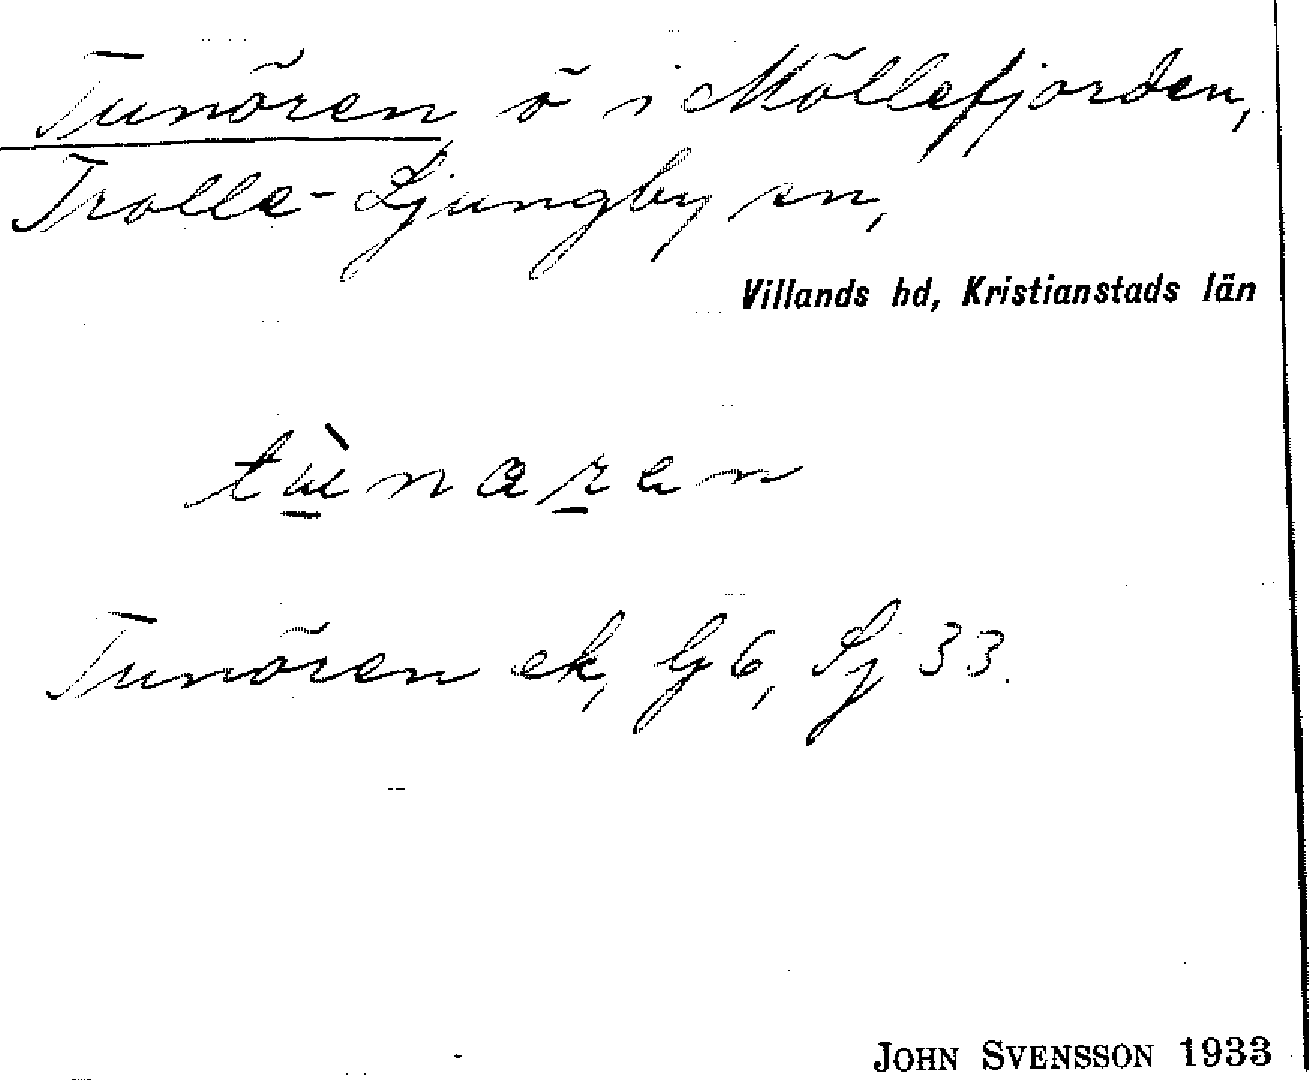 Tunören ö i Möllefjorden,
Trolle-Ljungby sn,
Villands hd, Kristianstads län
tùnaren
Tunören ek, G 6, Sj 33.
JOHN SVENSSON 1933